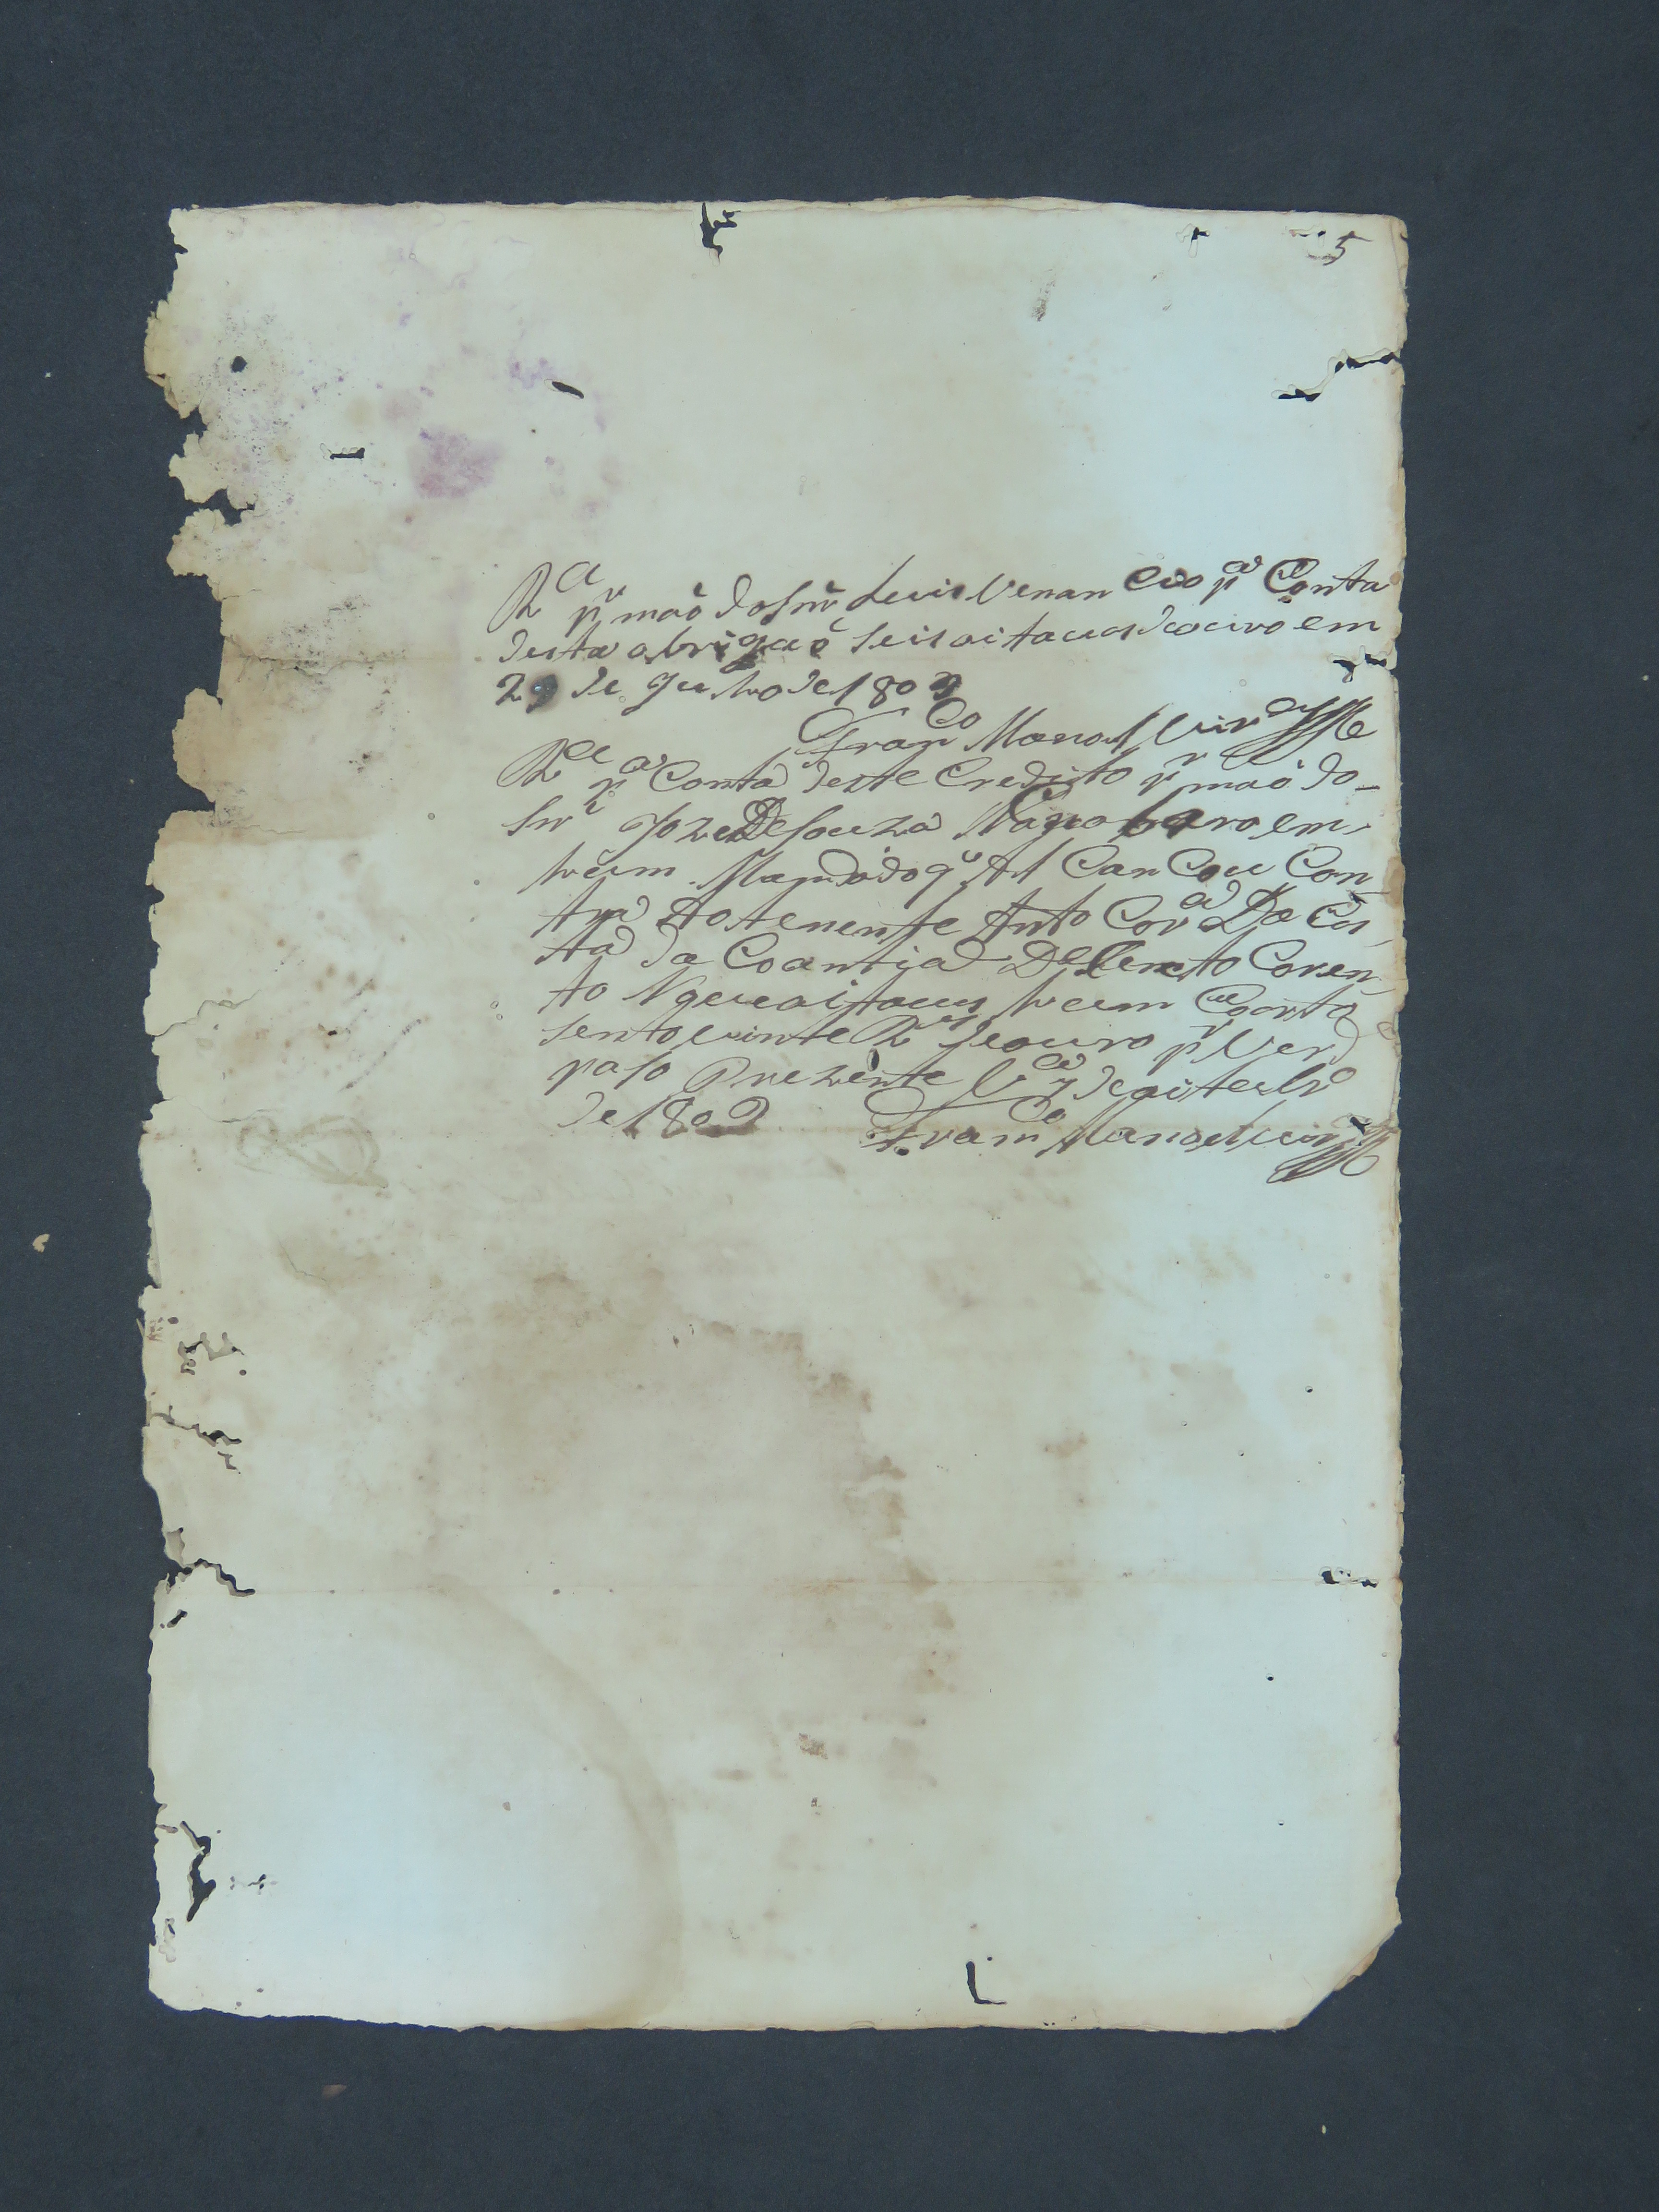 5
R.e p.r maõ do Snr̃ Luis Venancio p.a Conta
desta obrigaçaõ seis oitavas de ouro em
29 de Julho de 1809
Fran.co Manoel Vir.a
R.e p.a Conta deste Credito p.r maõ do
Snr. Joze De Souza em
hum Mandado q.e Al Can Cou Con
tra Ao tenente Anto Cor.a Da Cos
ta da Coantia De Cento Coren
to Nove oitavas hum Coarto
sento vinte R.s de ouro p.r Verd.e
paso o Prezente V.a 7 de oitubro
de 1809 Fram.co Manoel Vir.a